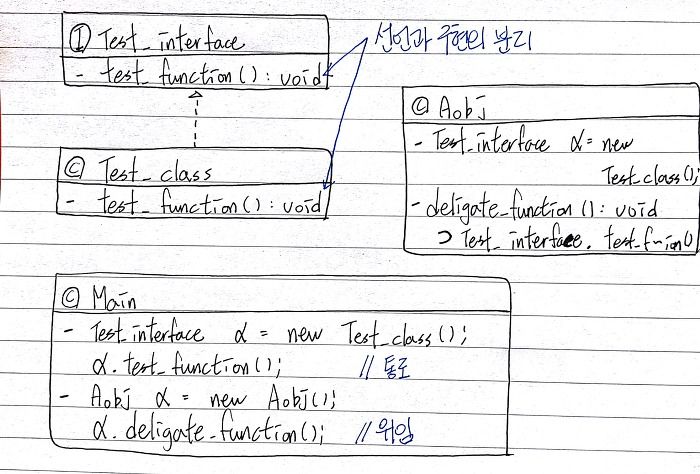 Ⓘ Test_interface
- test_function() : void
선언과 구현의 분리
Ⓒ Test_class
- test_function() : void
Ⓒ Aobj
- Test_interface α = new
Test_class();
- deligate_function() : void
⊃ Test_interface.
Ⓒ Main
- Test_interface α = new Test_class();
α.test_function(); // 통로
- Aobj α = new Aobj();
α.deligate_function(); // 위임